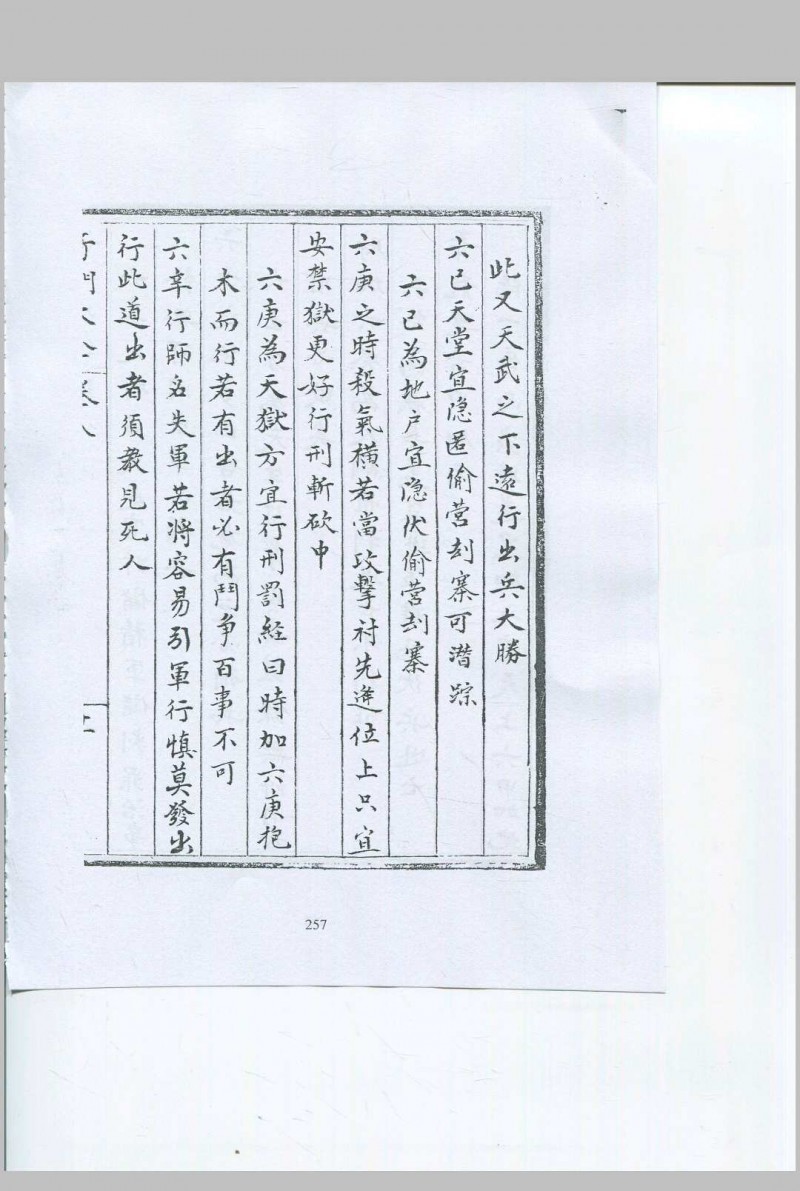 此又天武之下遠行出兵大勝
六己天堂宜隐匿偷营刦寨可潜踪
六己為地户宜隐伏偷营刦寨
六庚之時殺氣横若當攻擊討先逄位上只宜
安禁獄更好行刑斬砍中
六庚為天獄方宜行刑罰経曰時加六庚抱
木而行若有出者必有鬥争百事不可
六辛行師名失軍若将容易引軍行慎莫發出
行此道出者須教見死人
卷八
257